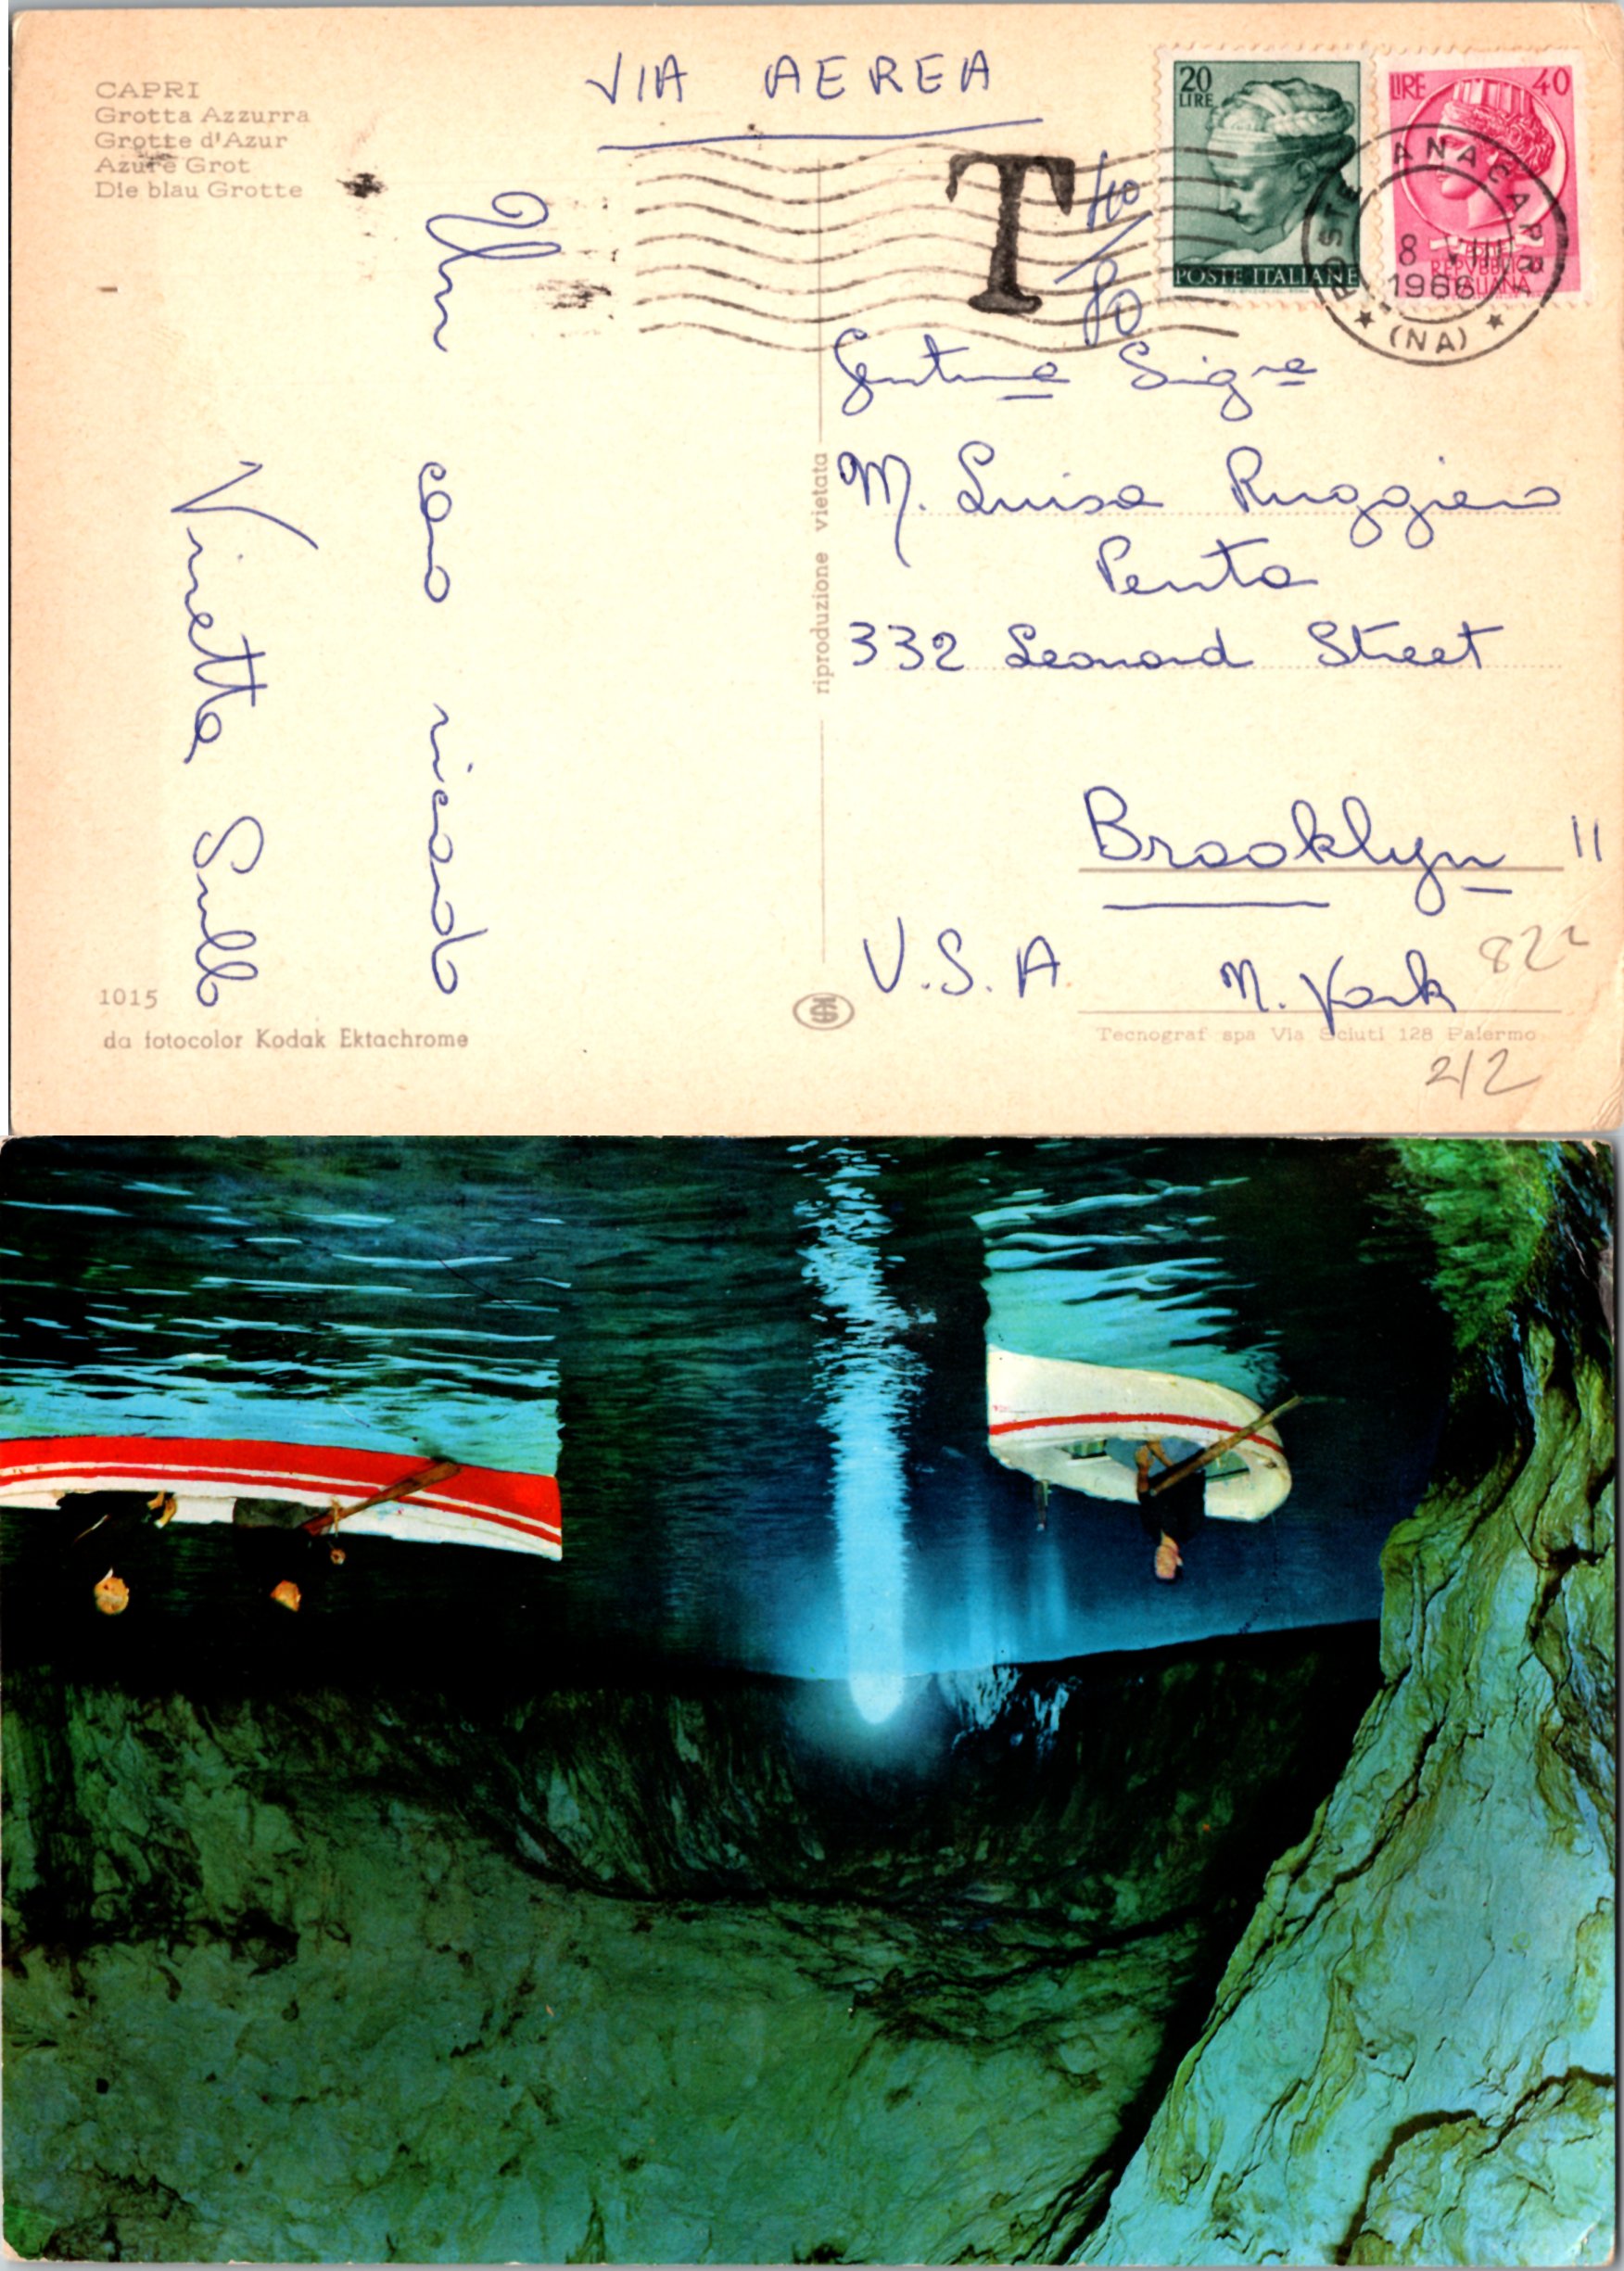 CAPRI
Grotta Azzurra
Grotte d'Azur
Azure Grot
Die blau Grotte
VIA AEREA
T 40/80
20
LIRE
POSTE ITALIANE
LIRE 40
REPVBBLICA
ITALIANA
POSTE ANACAPRI
8 VIII
1966
(NA)
Un
caro
ricordo
Vinetta
Gent.ma Sig.ra
M. Luisa Ruggiero
Penta
332 Leonard Street
Brooklyn 11
U.S.A N. York
822
212
riproduzione vietata
1015
da fotocolor Kodak Ektachrome
Tecnograf spa Via Sciuti 128 Palermo